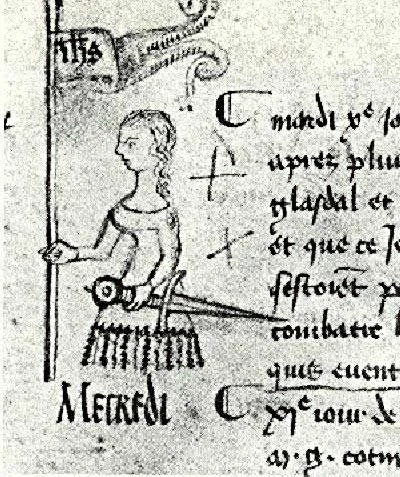 ihs
mardi xe jo
aprez pluis
glasdal et
et que ce Jo
sestoiēt p
combatre l
quis euent
Mecredi
xie iour de
m. g. cotin